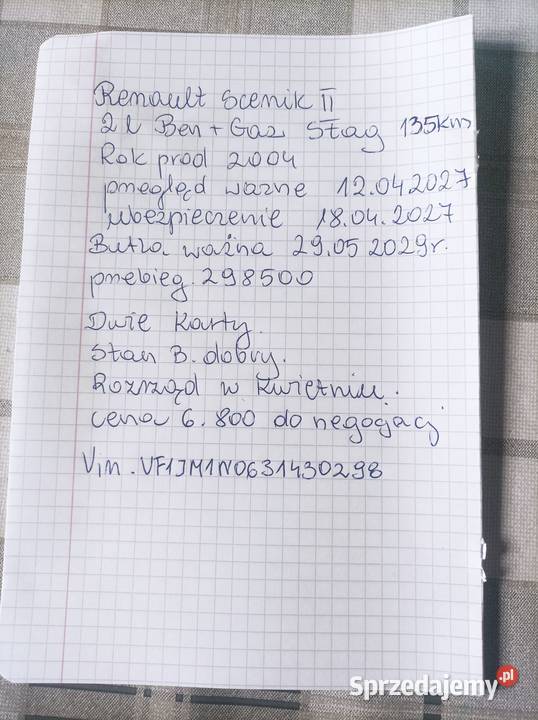 Renault Scenik II
2l Ben + Gaz Stag 135km
Rok prod 2004
pnegłęd ważne 12.04 2027
ubezpieczenie 18.04.2027
Butla ważna 29.05 2029r.
pnebieg. 298500
Dwie Karty.
Stan B. dobry.
Rozrząd w kwietniu.
cena 6.800 do negogacj
Vin. VF1JM1N0631430298
Sprzedajemy.pl